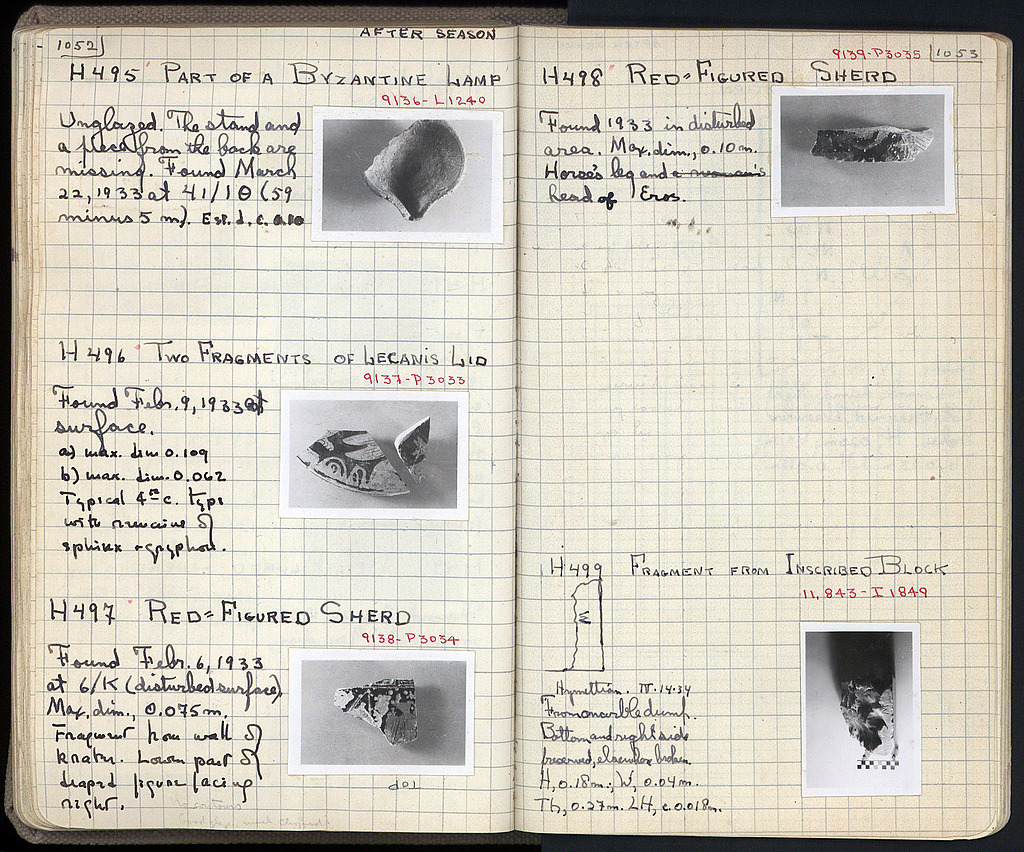 1052
AFTER SEASON
H495" PART OF A BYZANTINE LAMP
9136-L1240
Unglazed. The stand and
a piece from the back are
missing. Found March
22, 1933 at 41/ΙΘ (59
minus 5 m). Est. d. c. 0.10
H496" TWO FRAGMENTS OF LECANIS LID
9137-P3033
Found Febr. 9, 1933 at
surface.
a) max. dim 0.109
b) max. dim. 0.062
Typical 4th c. type
with remains of
sphinx + gryphon.
H497" RED=FIGURED SHERD
9138-P3034
Found Febr. 6, 1933
at 6/K (disturbed surface)
Max, dim., 0.075 m.
Fragment from wall of
krater. Lower part of
draped figure facing
right.
top
9139-P3035
1053
H498" RED=FIGURED SHERD
Found 1933 in disturbed
area. Max, dim., 0.10 m.
Horse's leg and a woman's
head of Eros.
H499 FRAGMENT FROM INSCRIBED BLOCK
11,843-I 1849
Hymettian. IV.14.34
From marble dump.
Bottom and right side
preserved, elsewhere broken.
H, 0.18m.; W, 0.04m.
Th, 0.27m. LH, c. 0.018m.